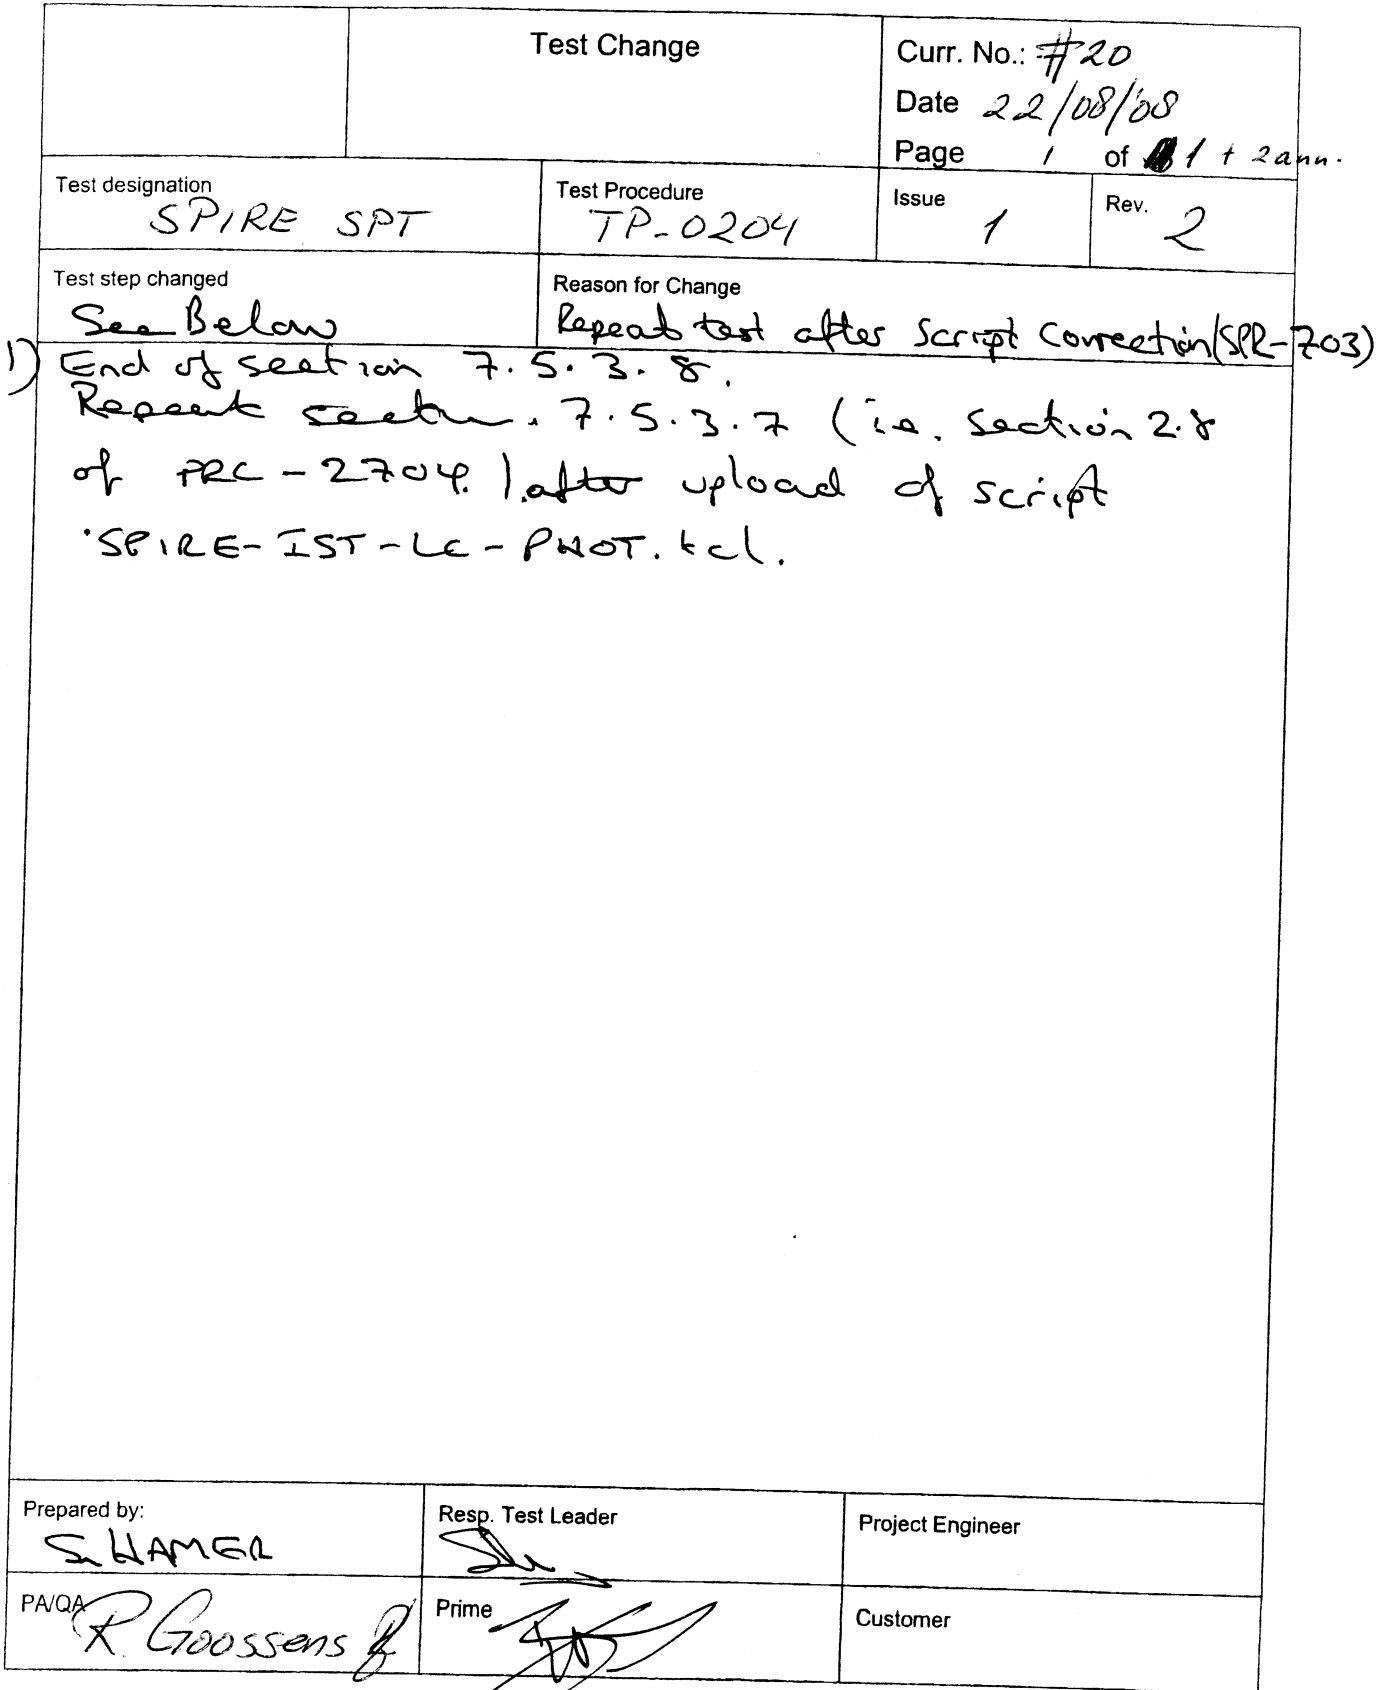 Test Change
Curr. No.: #20
Date 22/08/08
Page 1 of 1 + 2 ann.
Test designation
SPIRE SPT
Test Procedure
TP-0204
Issue
1
Rev.
2
Test step changed
See Below
Reason for Change
Repeat test after Script Correction (SPR-703)
1) End of section 7.5.3.8.
Repeat section 7.5.3.7 (i.e. section 2.8
of PRC-2704) after upload of script
SPIRE-IST-LC-PHOT.tcl.
Prepared by:
S. HAMER
Resp. Test Leader
Project Engineer
PA/QA
R Goossens
Prime
Customer